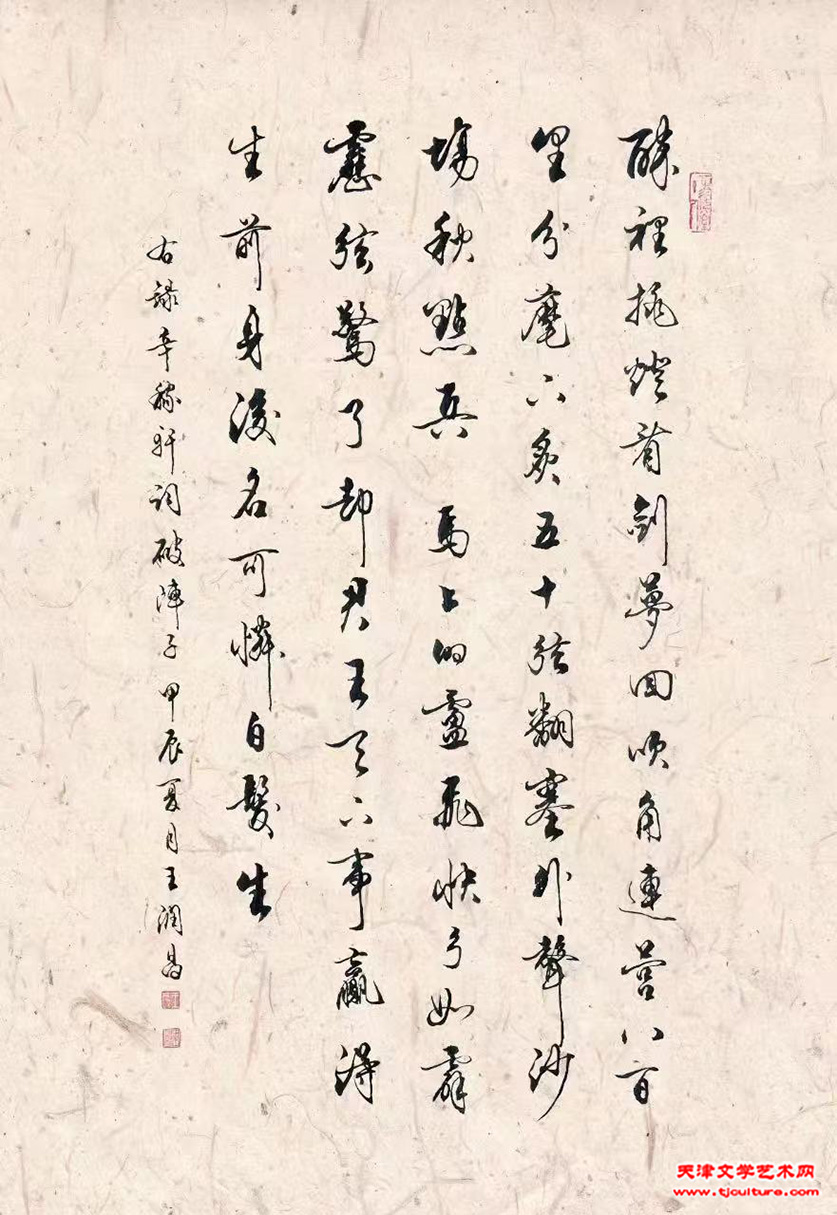 醉裡挑燈看劍夢回吹角連營八百
里分麾下炙五十弦翻塞外聲沙
場秋點兵 馬上的盧飛快弓如霹
靂弦驚了却君王天下事贏得
生前身後名可憐白髮生
右録辛稼軒詞破陣子甲辰夏月王潤昌
天津文学艺术网
www.tjculture.com